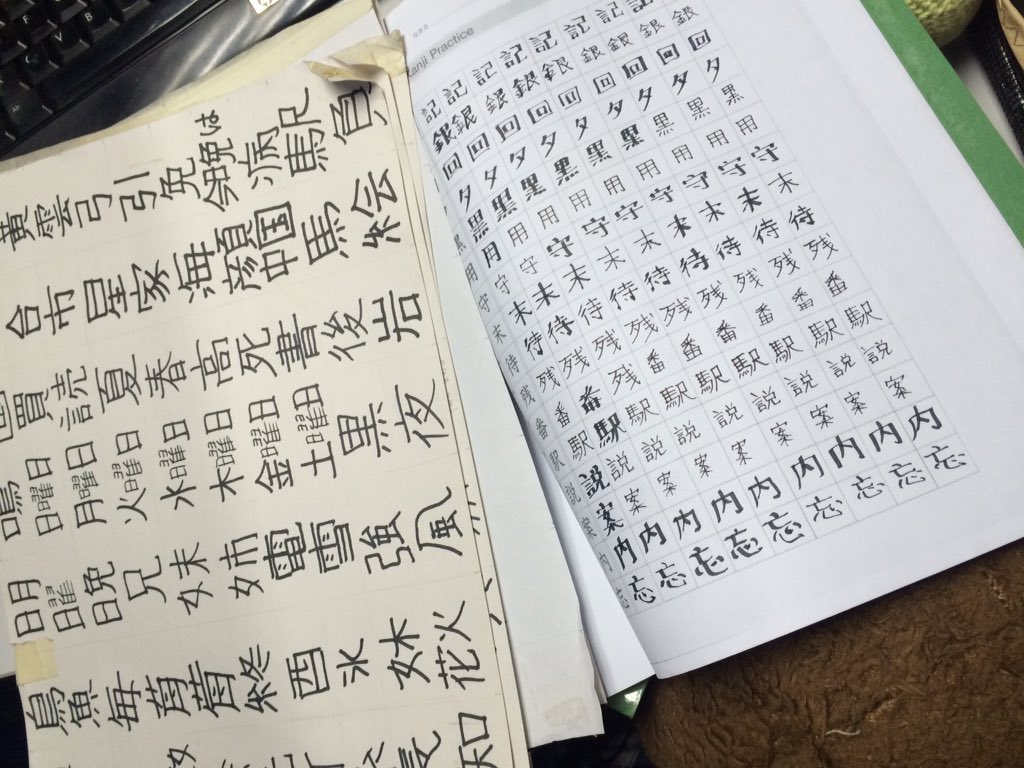 黄雲弓引免勉晩病駅員
台市星家海顔中国馬絵
買読夏春高死書後岩
鳴日曜日月曜日火曜日水曜日木曜日金曜日土曜日黒夜
明曜晩兄妹姉電雪強風
鳥魚毎終西氷花火
長知
Practice
記記記記記記記記
銀銀銀銀銀銀銀銀銀
回回回回回回回回回
夕夕夕夕夕夕夕夕夕
黒黒黒黒黒黒黒黒黒黒
用用用用用用用用用用
守守守守守守守守守
末末末末末末末末末末
待待待待待待待待待待
残残残残残残残残残残
番番残番番番番番番
駅駅駅駅駅駅駅駅駅駅
説説説説説説説説説説
案案案案案案案案案案
内内内内内内内内内内
忘忘忘忘忘忘忘忘忘忘